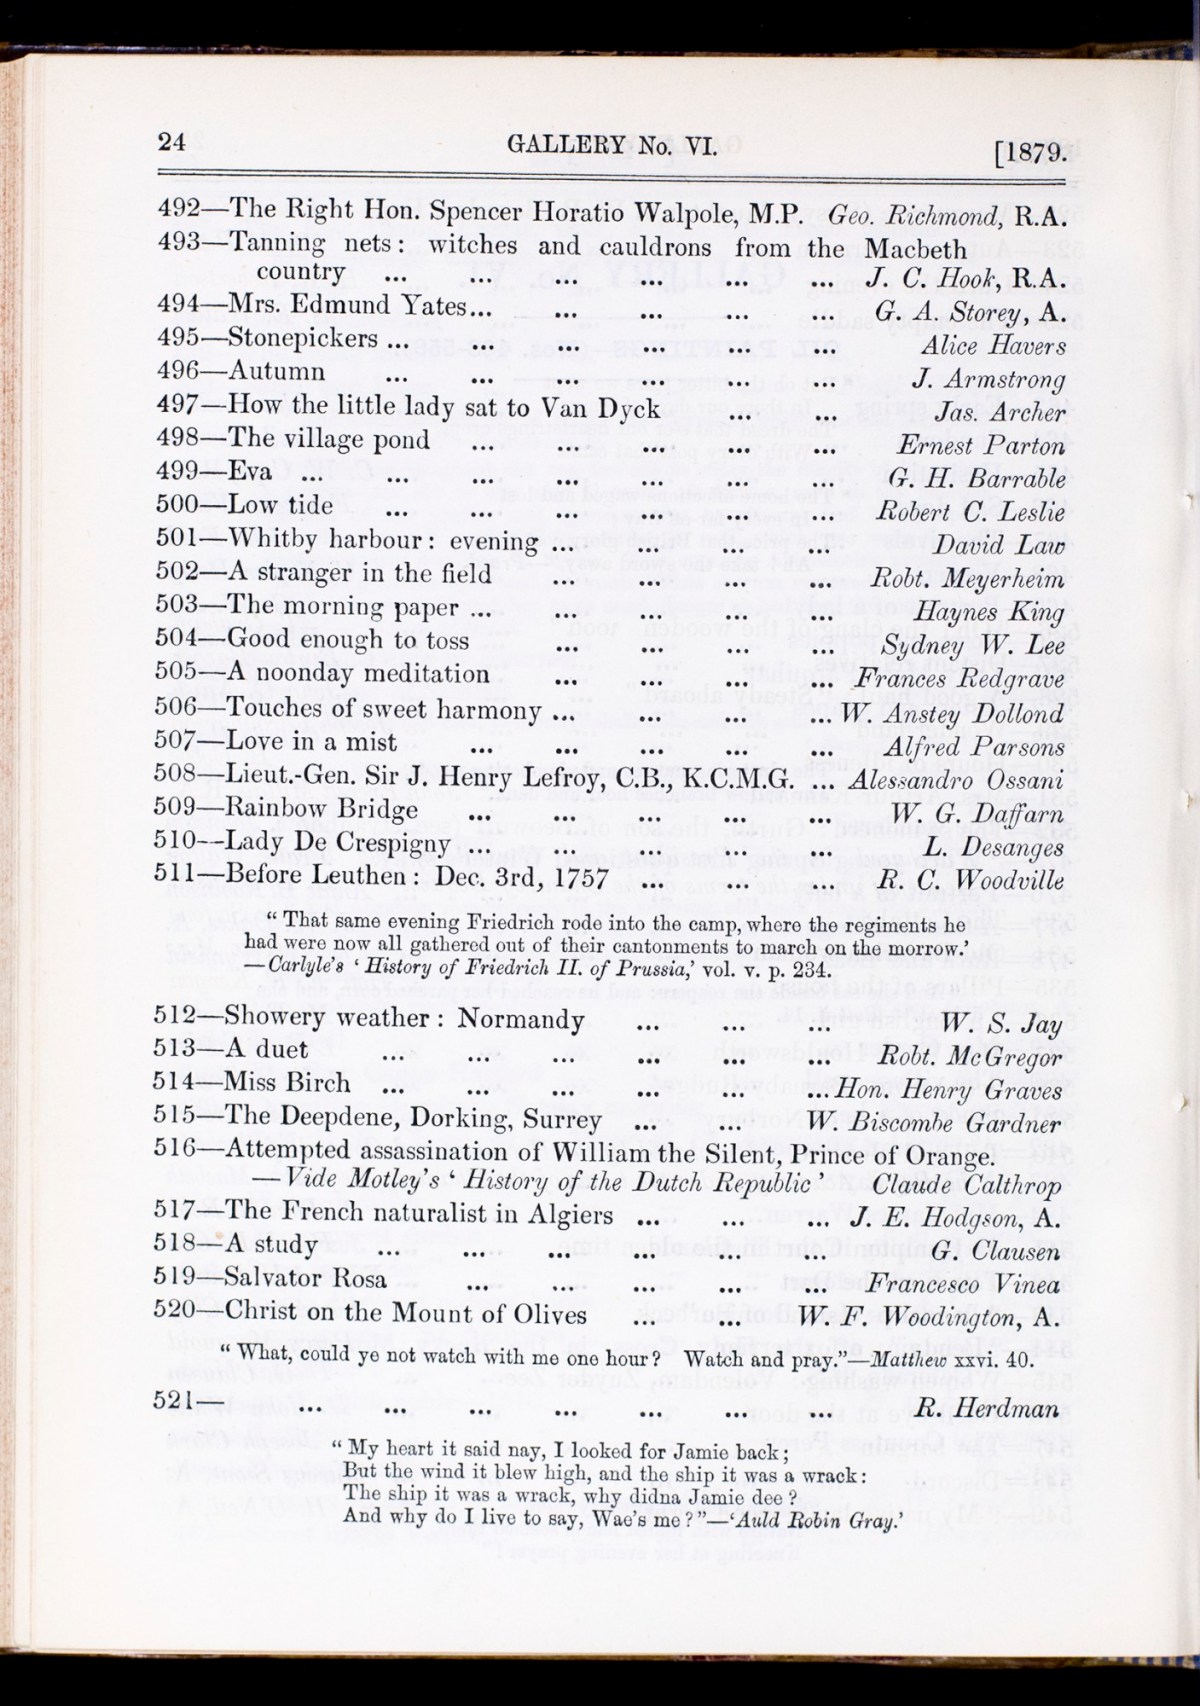 24 GALLERY No. VI. [1879.
492—The Right Hon. Spencer Horatio Walpole, M.P. Geo. Richmond, R.A.
493—Tanning nets: witches and cauldrons from the Macbeth
country ... ... ... ... ... ... J. C. Hook, R.A.
494—Mrs. Edmund Yates... ... ... ... ... G. A. Storey, A.
495—Stonepickers ... ... ... ... ... ... Alice Havers
496—Autumn ... ... ... ... ... ... J. Armstrong
497—How the little lady sat to Van Dyck ... ... Jas. Archer
498—The village pond ... ... ... ... ... Ernest Parton
499—Eva ... ... ... ... ... ... ... G. H. Barrable
500—Low tide ... ... ... ... ... ... Robert C. Leslie
501—Whitby harbour: evening ... ... ... ... David Law
502—A stranger in the field ... ... ... ... Robt. Meyerheim
503—The morning paper ... ... ... ... ... Haynes King
504—Good enough to toss ... ... ... ... Sydney W. Lee
505—A noonday meditation ... ... ... ... Frances Redgrave
506—Touches of sweet harmony ... ... ... ... W. Anstey Dollond
507—Love in a mist ... ... ... ... ... Alfred Parsons
508—Lieut.-Gen. Sir J. Henry Lefroy, C.B., K.C.M.G. ... Alessandro Ossani
509—Rainbow Bridge ... ... ... ... ... W. G. Daffarn
510—Lady De Crespigny ... ... ... ... ... L. Desanges
511—Before Leuthen: Dec. 3rd, 1757 ... ... ... R. C. Woodville
“ That same evening Friedrich rode into the camp, where the regiments he
had were now all gathered out of their cantonments to march on the morrow.’
—Carlyle’s ‘ History of Friedrich II. of Prussia,’ vol. v. p. 234.
512—Showery weather: Normandy ... ... ... W. S. Jay
513—A duet ... ... ... ... ... ... Robt. McGregor
514—Miss Birch ... ... ... ... ... ... Hon. Henry Graves
515—The Deepdene, Dorking, Surrey ... ... W. Biscombe Gardner
516—Attempted assassination of William the Silent, Prince of Orange.
—Vide Motley’s ‘ History of the Dutch Republic ’ Claude Calthrop
517—The French naturalist in Algiers ... ... ... J. E. Hodgson, A.
518—A study ... ... ... ... ... ... G. Clausen
519—Salvator Rosa ... ... ... ... ... Francesco Vinea
520—Christ on the Mount of Olives ... ... W. F. Woodington, A.
“ What, could ye not watch with me one hour? Watch and pray.”—Matthew xxvi. 40.
521— ... ... ... ... ... ... ... R. Herdman
“ My heart it said nay, I looked for Jamie back;
But the wind it blew high, and the ship it was a wrack:
The ship it was a wrack, why didna Jamie dee?
And why do I live to say, Wae’s me?”—‘Auld Robin Gray.’